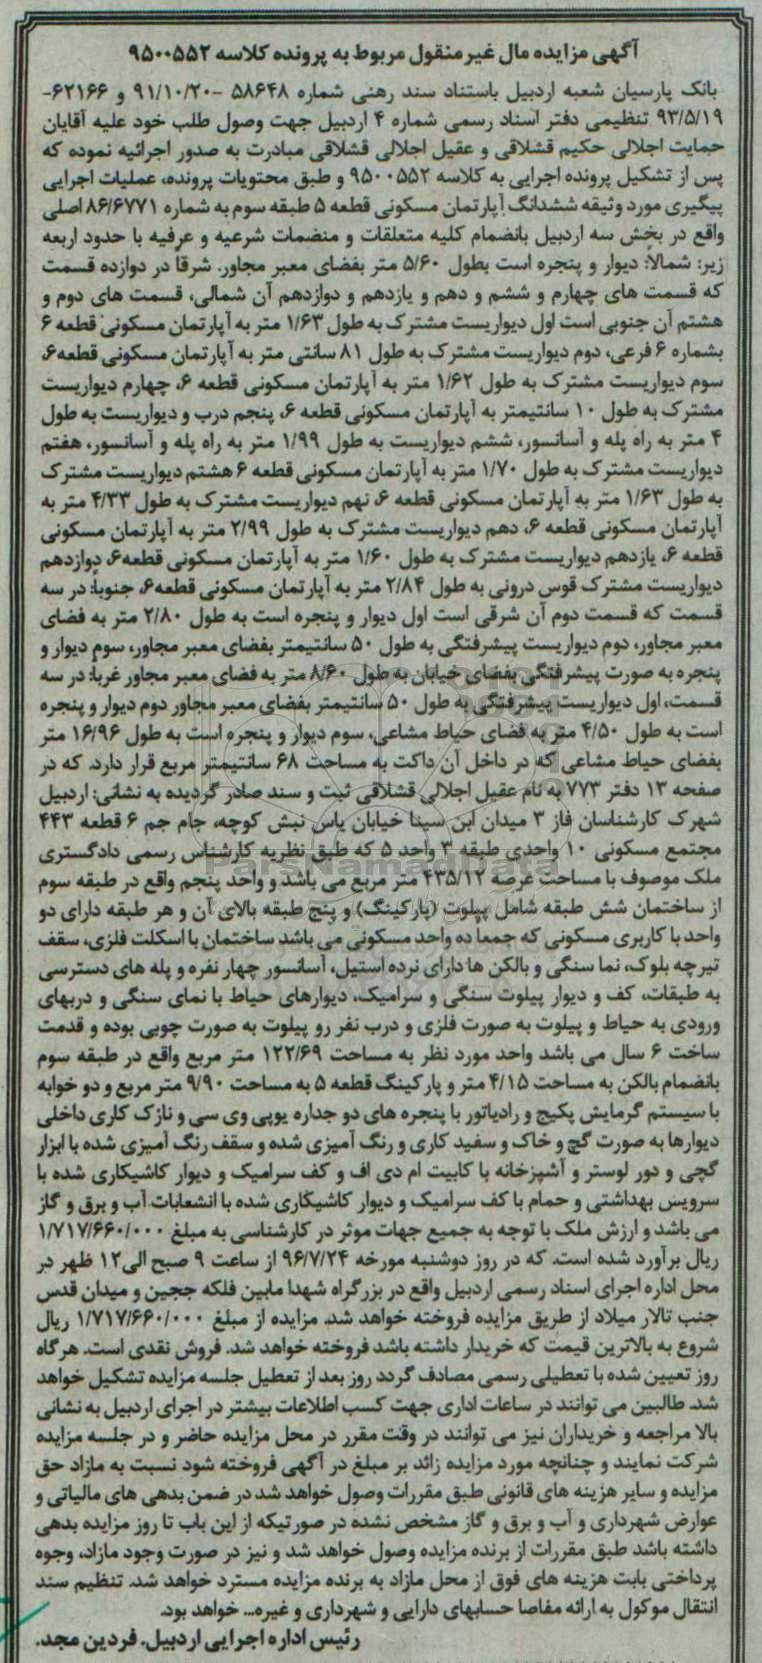 آگهی مزایده مال غیرمنقول مربوط به پرونده کلاسه ۹۵۰۰۵۵۲
بانک پارسیان شعبه اردبیل باستناد سند رهنی شماره ۵۸۶۴۸ -۹۱/۱۰/۲۰ و ۶۲۱۶۶-
۹۳/۵/۱۹ تنظیمی دفتر اسناد رسمی شماره ۴ اردبیل جهت وصول طلب خود علیه آقایان
حمایت اجلالی حکیم قشلاقی و عقیل اجلالی قشلاقی مبادرت به صدور اجرائیه نموده که
پس از تشکیل پرونده اجرایی به کلاسه ۹۵۰۰۵۵۲ و طبق محتویات پرونده، عملیات اجرایی
پیگیری مورد وثیقه ششدانگ آپارتمان مسکونی قطعه ۵ طبقه سوم به شماره ۸۶/۶۷۷۱ اصلی
واقع در بخش سه اردبیل بانضمام کلیه متعلقات و منضمات شرعیه و عرفیه با حدود اربعه
زیر: شمالاً: دیوار و پنجره است بطول ۵/۶۰ متر بفضای معبر مجاور. شرقاً در دوازده قسمت
که قسمت های چهارم و ششم و دهم و یازدهم و دوازدهم آن شمالی، قسمت های دوم و
هشتم آن جنوبی است اول دیواریست مشترک به طول ۱/۶۳ متر به آپارتمان مسکونی قطعه ۶
بشماره ۶ فرعی، دوم دیواریست مشترک به طول ۸۱ سانتی متر به آپارتمان مسکونی قطعه۶،
سوم دیواریست مشترک به طول ۱/۶۲ متر به آپارتمان مسکونی قطعه ۶، چهارم دیواریست
مشترک به طول ۱۰ سانتیمتر به آپارتمان مسکونی قطعه ۶، پنجم درب و دیواریست به طول
۴ متر به راه پله و آسانسور، ششم دیواریست به طول ۱/۹۹ متر به راه پله و آسانسور، هفتم
دیواریست مشترک به طول ۱/۷۰ متر به آپارتمان مسکونی قطعه ۶ هشتم دیواریست مشترک
به طول ۱/۶۳ متر به آپارتمان مسکونی قطعه ۶، نهم دیواریست مشترک به طول ۴/۳۳ متر به
آپارتمان مسکونی قطعه ۶، دهم دیواریست مشترک به طول ۲/۹۹ متر به آپارتمان مسکونی
قطعه ۶، یازدهم دیواریست مشترک به طول ۱/۶۰ متر به آپارتمان مسکونی قطعه۶، دوازدهم
دیواریست مشترک قوس درونی به طول ۲/۸۴ متر به آپارتمان مسکونی قطعه۶، جنوباً: در سه
قسمت که قسمت دوم آن شرقی است اول دیوار و پنجره است به طول ۲/۸۰ متر به فضای
معبر مجاور، دوم دیواریست پیشرفتگی به طول ۵۰ سانتیمتر بفضای معبر مجاور، سوم دیوار و
پنجره به صورت پیشرفتگی بفضای خیابان به طول ۸/۶۰ متر به فضای معبر مجاور غرباً: در سه
قسمت، اول دیواریست پیشرفتگی به طول ۵۰ سانتیمتر بفضای معبر مجاور دوم دیوار و پنجره
است به طول ۴/۵۰ متر به فضای حیاط مشاعی، سوم دیوار و پنجره است به طول ۱۶/۹۶ متر
بفضای حیاط مشاعی که در داخل آن داکت به مساحت ۶۸ سانتیمتر مربع قرار دارد. که در
صفحه ۱۳ دفتر ۷۷۳ به نام عقیل اجلالی قشلاقی ثبت و سند صادر گردیده به نشانی: اردبیل
شهرک کارشناسان فاز ۳ میدان ابن سینا خیابان یاس نبش کوچه، جام جم ۶ قطعه ۴۴۳
مجتمع مسکونی ۱۰ واحدی طبقه ۳ واحد ۵ که طبق نظریه کارشناس رسمی دادگستری
ملک موصوف با مساحت عرصه ۴۳۵/۱۲ متر مربع می باشد و واحد پنجم واقع در طبقه سوم
از ساختمان شش طبقه شامل پیلوت (پارکینگ) و پنج طبقه بالای آن و هر طبقه دارای دو
واحد با کاربری مسکونی که جمعا ده واحد مسکونی می باشد ساختمان با اسکلت فلزی، سقف
تیرچه بلوک، نما سنگی و بالکن ها دارای نرده استیل، آسانسور چهار نفره و پله های دسترسی
به طبقات، کف و دیوار پیلوت سنگی و سرامیک، دیوارهای حیاط با نمای سنگی و دربهای
ورودی به حیاط و پیلوت به صورت فلزی و درب نفر رو پیلوت به صورت چوبی بوده و قدمت
ساخت ۶ سال می باشد واحد مورد نظر به مساحت ۱۲۲/۶۹ متر مربع واقع در طبقه سوم
بانضمام بالکن به مساحت ۴/۱۵ متر و پارکینگ قطعه ۵ به مساحت ۹/۹۰ متر مربع و دو خوابه
با سیستم گرمایش پکیج و رادیاتور با پنجره های دو جداره یوپی وی سی و نازک کاری داخلی
دیوارها به صورت گچ و خاک و سفید کاری و رنگ آمیزی شده و سقف رنگ آمیزی شده با ابزار
گچی و دور لوستر و آشپزخانه با کابیت ام دی اف و کف سرامیک و دیوار کاشیکاری شده با
سرویس بهداشتی و حمام با کف سرامیک و دیوار کاشیکاری شده با انشعابات آب و برق و گاز
می باشد و ارزش ملک با توجه به جمیع جهات موثر در کارشناسی به مبلغ ۱/۷۱۷/۶۶۰/۰۰۰
ریال برآورد شده است. که در روز دوشنبه مورخه ۹۶/۷/۲۴ از ساعت ۹ صبح الی۱۲ ظهر در
محل اداره اجرای اسناد رسمی اردبیل واقع در بزرگراه شهدا مابین فلکه ججین و میدان قدس
جنب تالار میلاد از طریق مزایده فروخته خواهد شد. مزایده از مبلغ ۱/۷۱۷/۶۶۰/۰۰۰ ریال
شروع به بالاترین قیمت که خریدار داشته باشد فروخته خواهد شد. فروش نقدی است. هرگاه
روز تعیین شده با تعطیلی رسمی مصادف گردد روز بعد از تعطیل جلسه مزایده تشکیل خواهد
شد. طالبین می توانند در ساعات اداری جهت کسب اطلاعات بیشتر در اجرای اردبیل به نشانی
بالا مراجعه و خریداران نیز می توانند در وقت مقرر در محل مزایده حاضر و در جلسه مزایده
شرکت نمایند و چنانچه مورد مزایده زائد بر مبلغ در آگهی فروخته شود نسبت به مازاد حق
مزایده و سایر هزینه های قانونی طبق مقررات وصول خواهد شد در ضمن بدهی های مالیاتی و
عوارض شهرداری و آب و برق و گاز مشخص نشده در صورتیکه از این باب تا روز مزایده بدهی
داشته باشد طبق مقررات از برنده مزایده وصول خواهد شد و نیز در صورت وجود مازاد، وجوه
پرداختی بابت هزینه های فوق از محل مازاد به برنده مزایده مسترد خواهد شد. تنظیم سند
انتقال موکول به ارائه مفاصا حسابهای دارایی و شهرداری و غیره... خواهد بود.
رئیس اداره اجرایی اردبیل. فردین مجد.
ParsNamadData